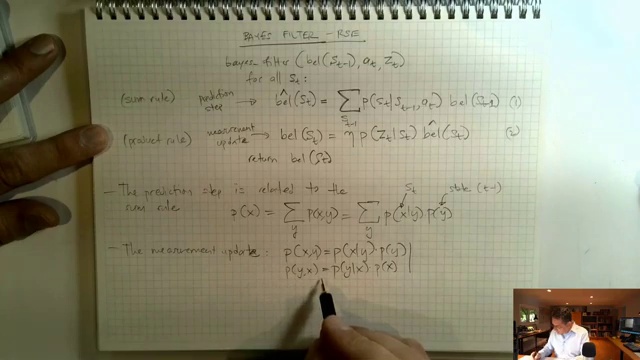 BAYES FILTER - RSE
bayes filter (bel(S_{t-1}), a_t, z_t)
for all S_t:
(sum rule) prediction step → b̂el(S_t) = Σ_{S_{t-1}} p(S_t|S_{t-1}, a_t) bel(S_{t-1}) (1)
(product rule) measurement update → bel(S_t) = η p(z_t|S_t) b̂el(S_t) (2)
return bel(S_t)
S_t state (t-1)
- The prediction step is related to the
sum rule p(x) = Σ_y p(x,y) = Σ_y p(x|y) p(y)
- The measurement update: p(x,y) = p(x|y) · p(y)
p(y,x) = p(y|x) p(x)